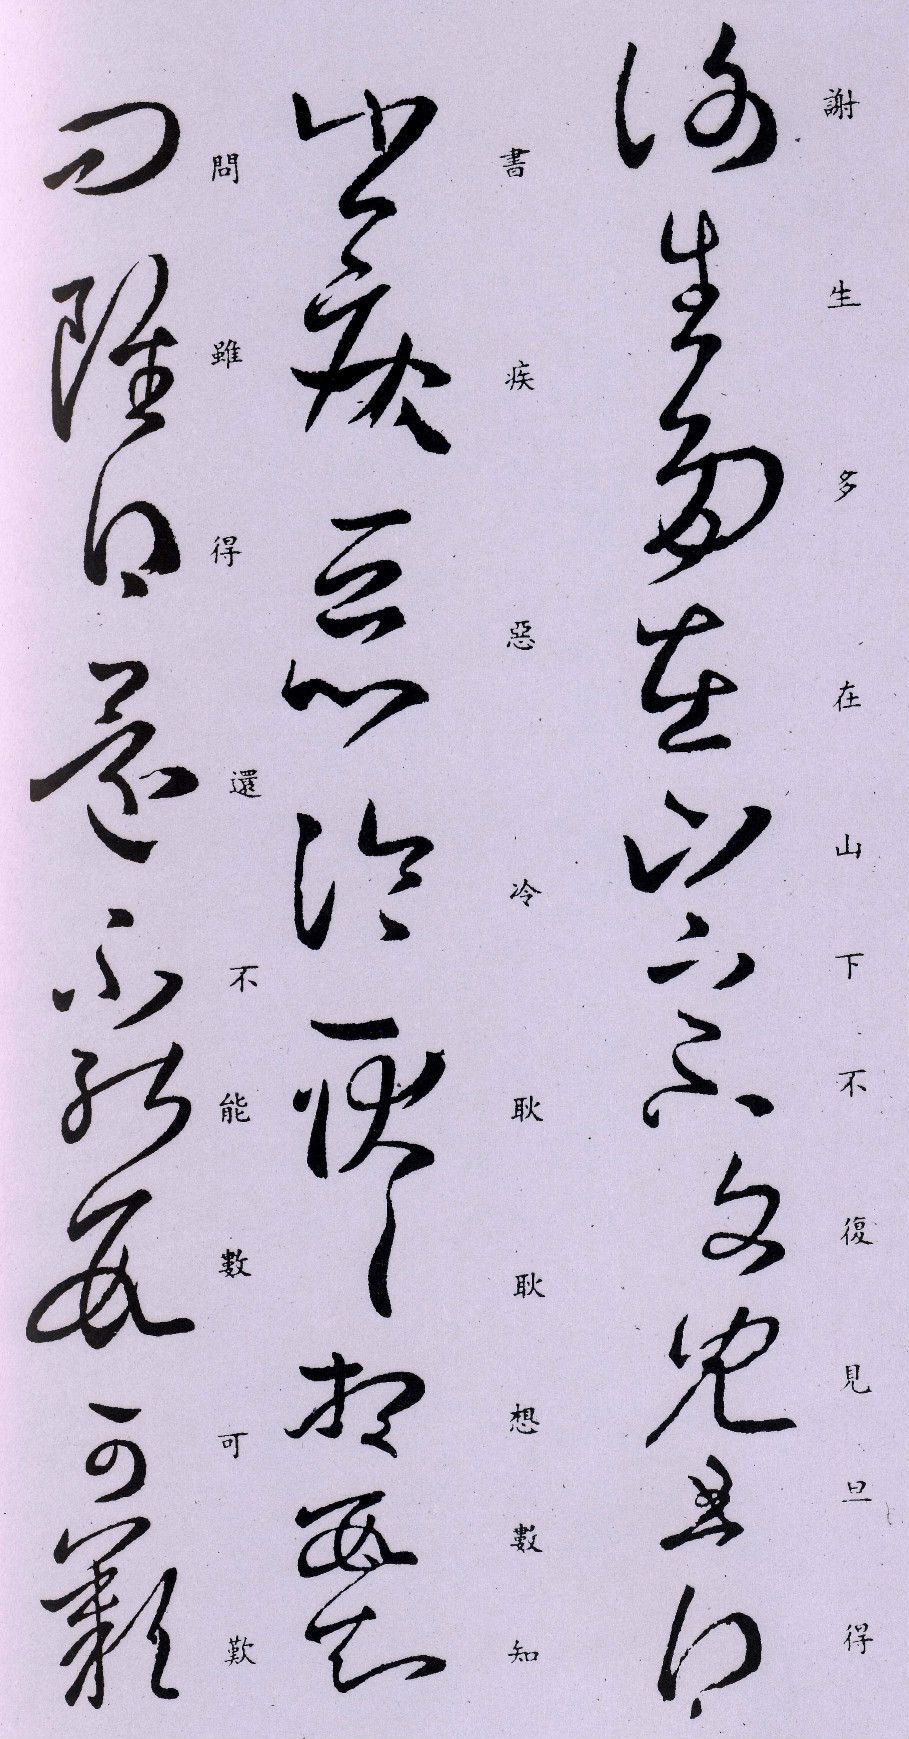 謝生多在山下不復見且得
書疾惡冷耿耿想數知
問雖得還不能數可歎